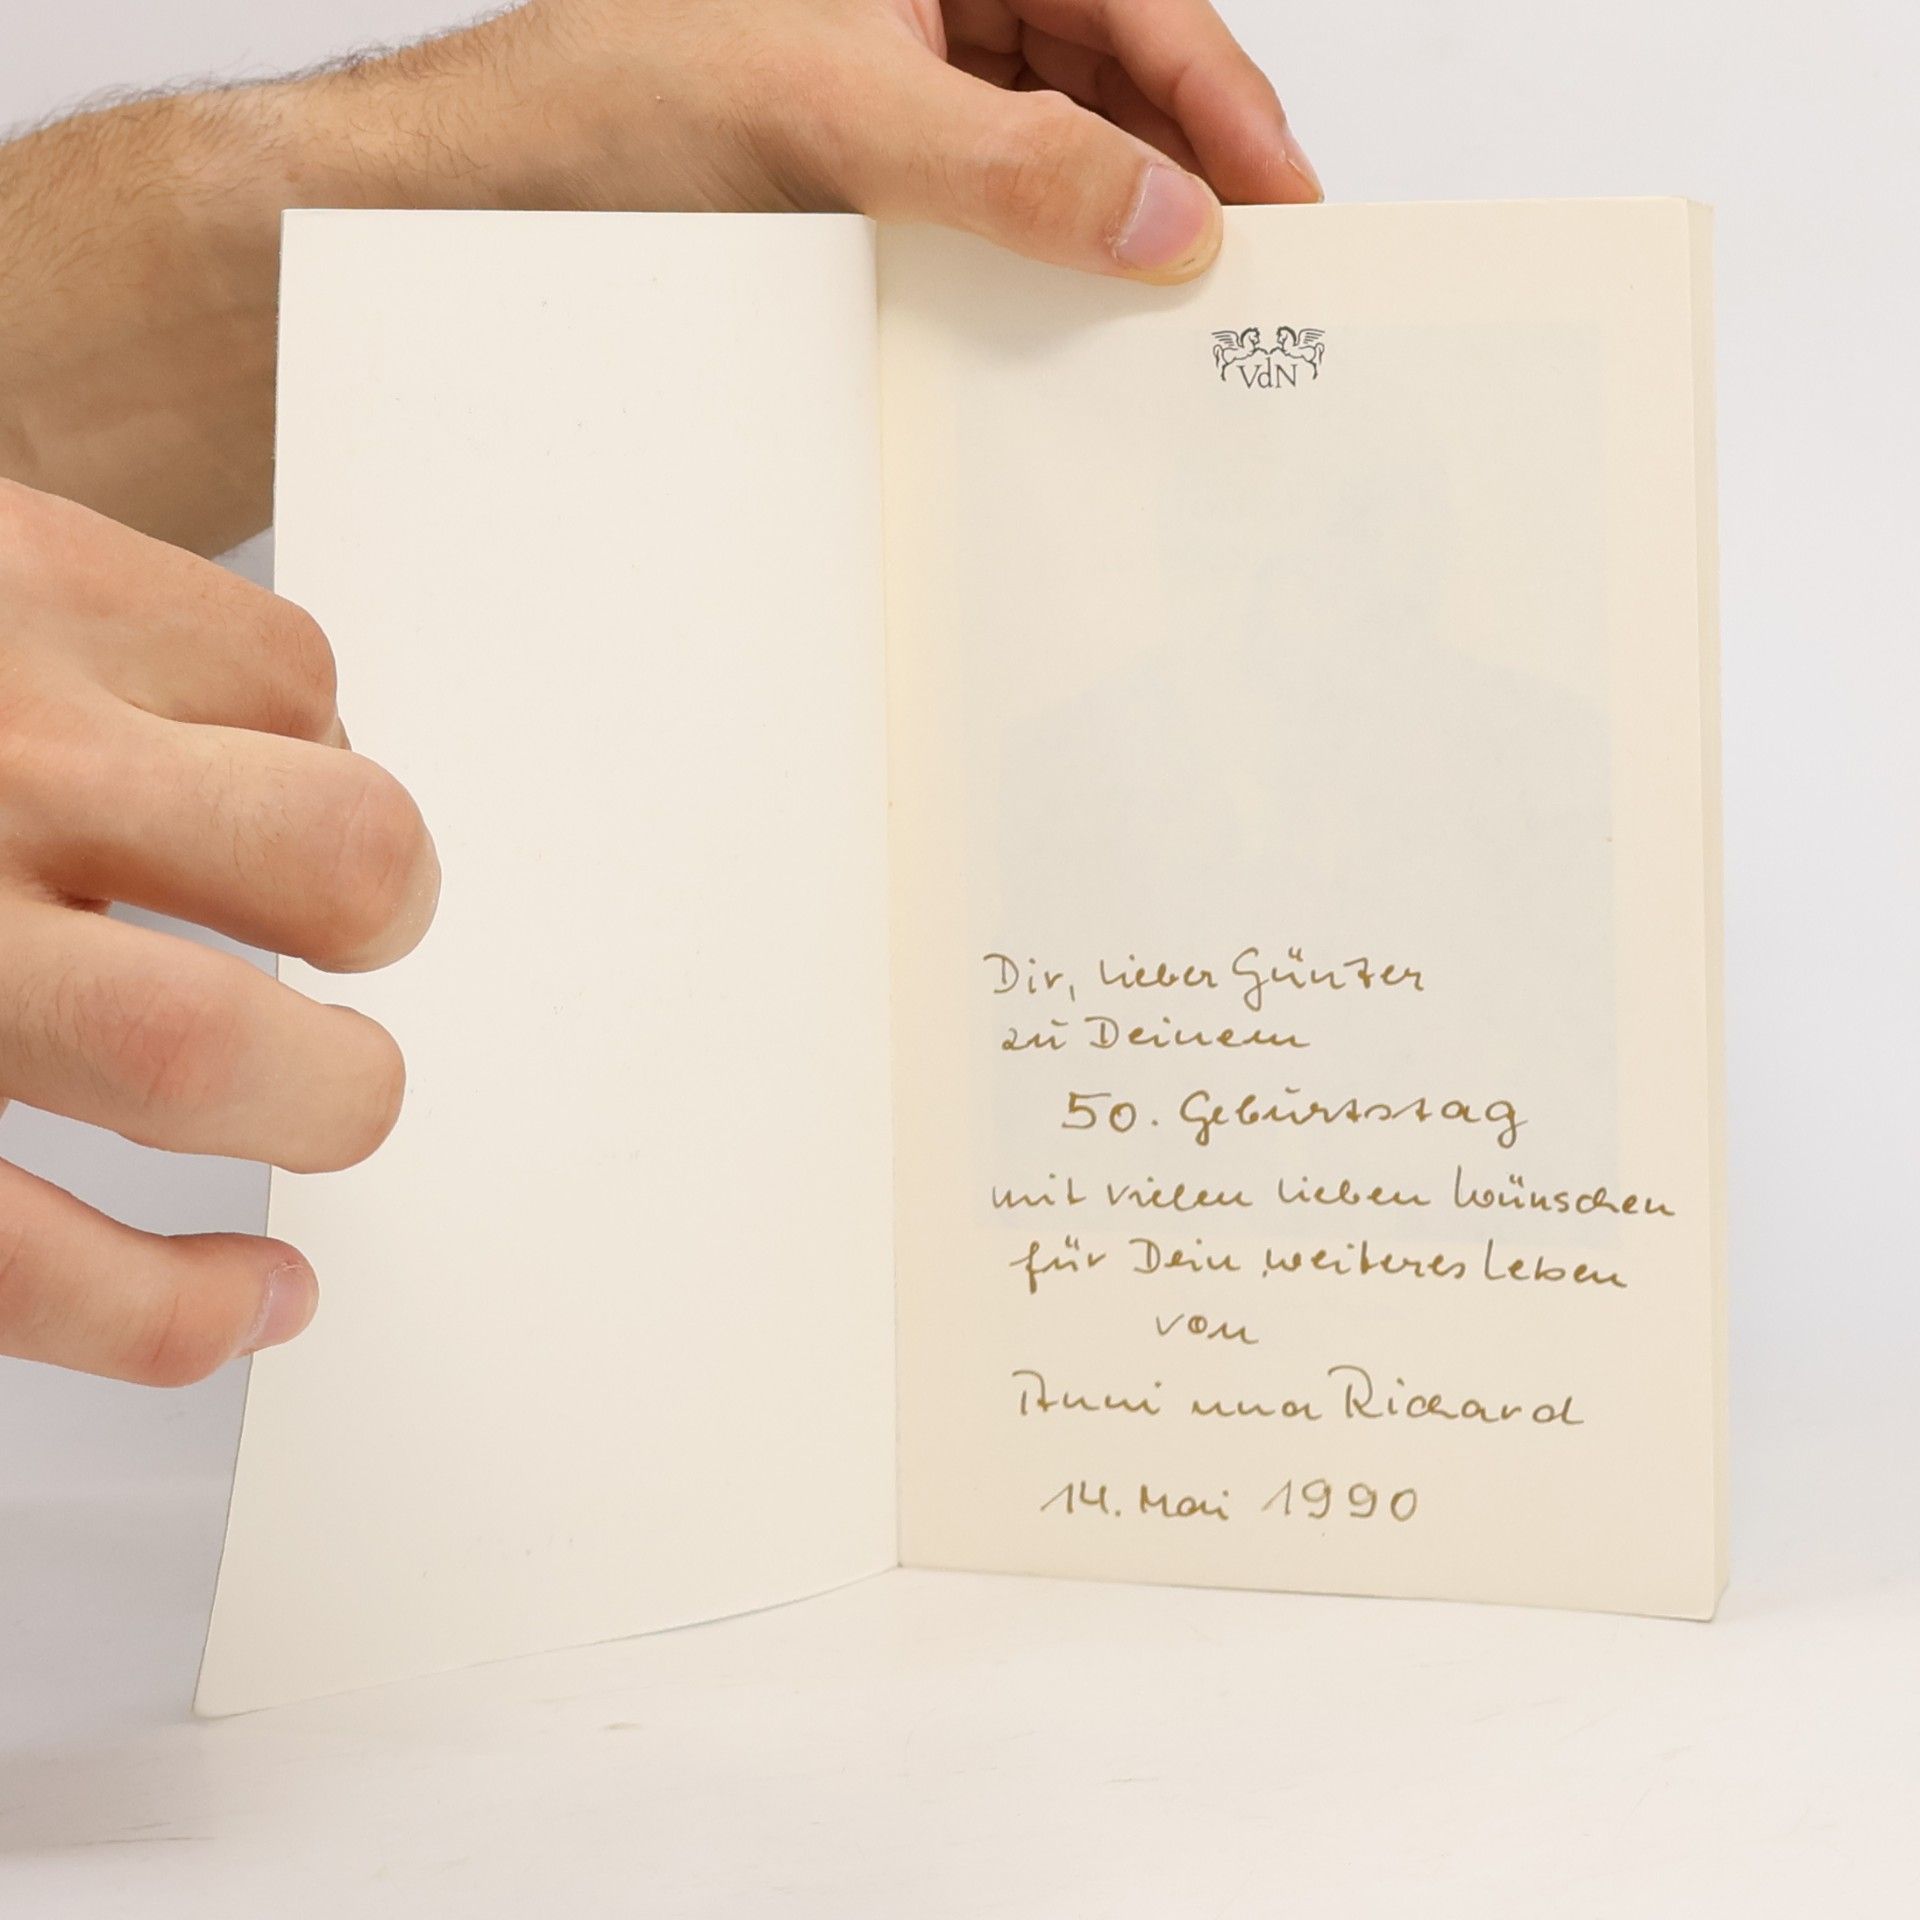 VdN
Dir, lieber Günter
zu Deinem
50. Geburtstag
mit vielen lieben Wünschen
für Dein weiteres Leben
von
Anni und Richard
14. Mai 1990